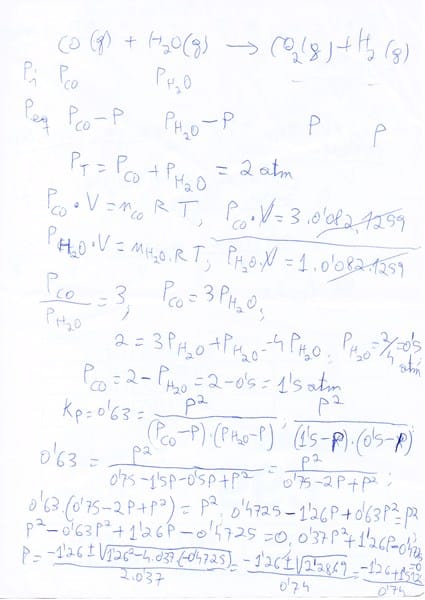 CO (g) + H₂O (g) → CO₂ (g) + H₂ (g)
Pi P_CO P_H₂O — —
Peq P_CO-P P_H₂O-P P P
P_T = P_CO + P_H₂O = 2 atm
P_CO · V = n_CO R T, P_CO · V = 3 · 0'082 · 1259
P_H₂O · V = n_H₂O · R T; P_H₂O · V = 1 · 0'082 · 1259
P_CO / P_H₂O = 3, P_CO = 3 P_H₂O;
2 = 3 P_H₂O + P_H₂O = 4 P_H₂O; P_H₂O = 2/4 = 0'5 atm
P_CO = 2 - P_H₂O = 2 - 0'5 = 1'5 atm
Kp = 0'63 = P² / (P_CO-P) · (P_H₂O-P); P² / (1'5-P) · (0'5-P)
0'63 = P² / 0'75-1'5P-0'5P+P² = P² / 0'75-2P+P² ;
0'63 · (0'75-2P+P²) = P²; 0'4725-1'26P+0'63P² = P²
P²-0'63P²+1'26P-0'4725 = 0; 0'37P²+1'26P-0'4725=0
P = -1'26 ± √1'26²-4·0'37·(-0'4725) / 2·0'37 = -1'26 ± √2'2869 / 0'74 = -1'26+1'512 / 0'74